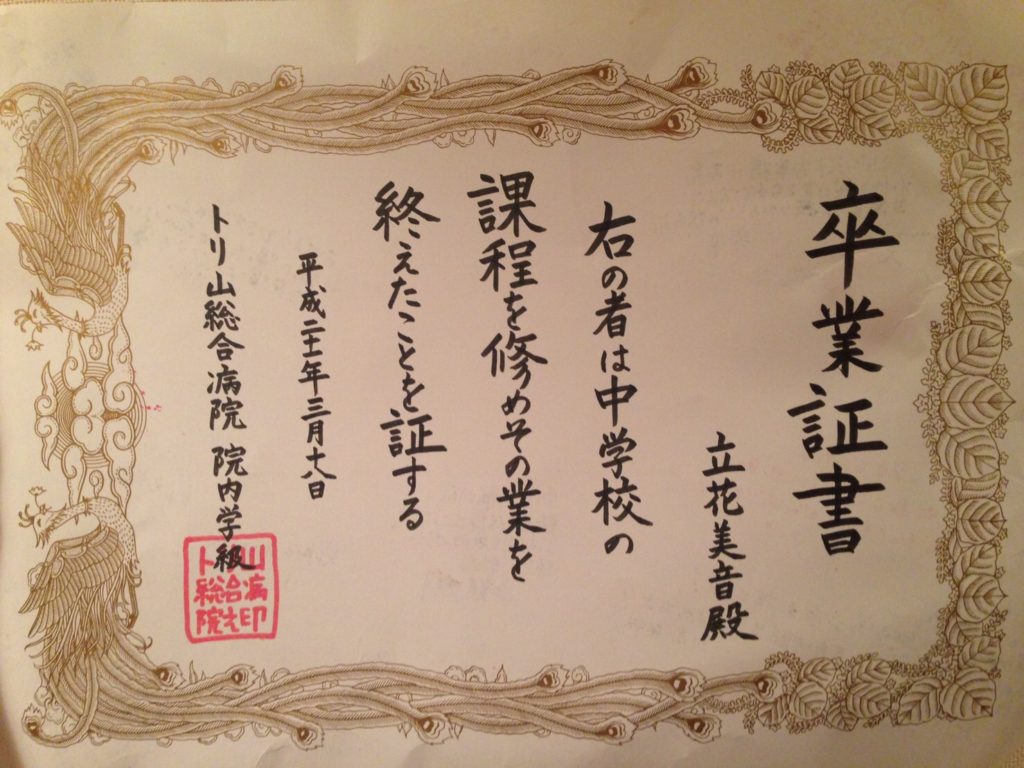 卒業証書
立花美音殿
右の者は中学校の
課程を修めその業を
終えたことを証する
平成二十一年三月十八日
トリ山総合病院 院内学級
ト山
総合病
院之印